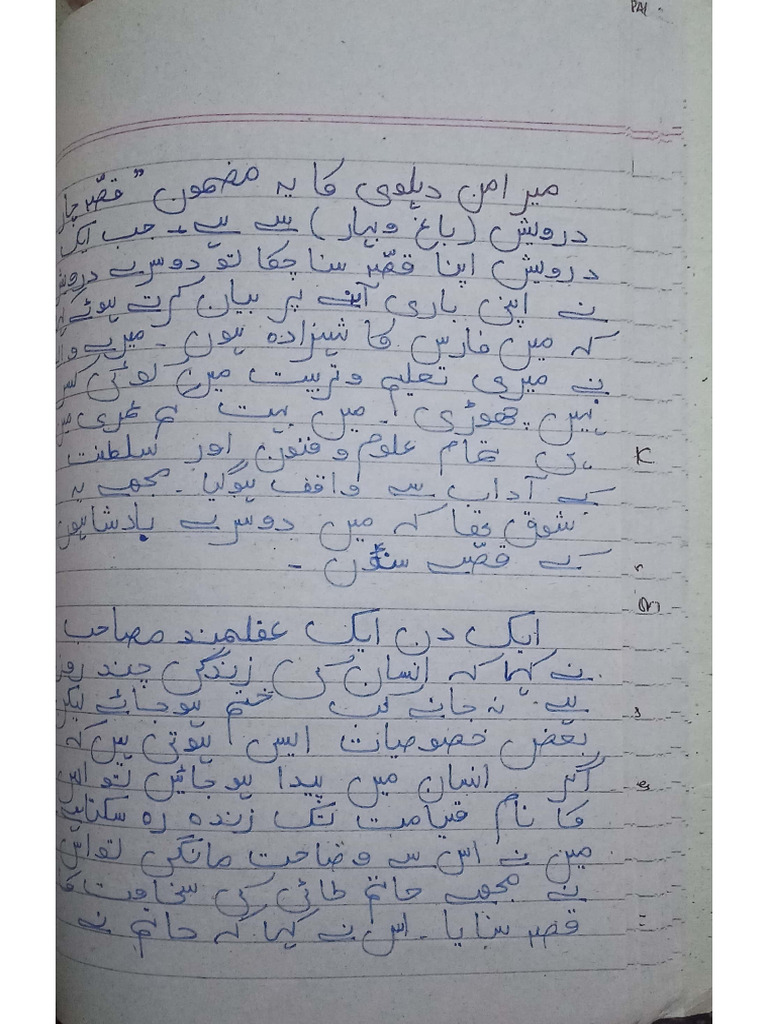 میر امن دہلوی کا یہ مضمون "قصّہ چار
درویش (باغ و بہار) سے ہے۔ جب ایک
درویش اپنا قصّہ سنا چکا تو دوسرے درویش
نے اپنی باری آنے پر بیان کرتے ہوئے کہا
کہ میں فارس کا شہزادہ ہوں۔ میرے والد
نے میری تعلیم و تربیت میں کوئی کسر
نہیں چھوڑی۔ میں بہت کم عمری میں
ہی تمام علوم و فنون اور سلطنت
کے آداب سے واقف ہوگیا۔ مجھے یہ
شوق تھا کہ میں دوسرے بادشاہوں
کے قصّے سنوں۔
ایک دن ایک عقلمند مصاحب
نے کہا کہ انسان کی زندگی چند روز
ہے۔ نہ جانے کب ختم ہوجائے لیکن
بعض خصوصیات ایسی ہوتی ہیں کہ
اگر انسان میں پیدا ہو جائیں تو اس
کا نام قیامت تک زندہ رہ سکتا ہے
میں نے اس سے وضاحت مانگی تو اس
نے مجھے حاتم طائی کی سخاوت کا
قصہ سنایا۔ اس نے کہا کہ حاتم نے